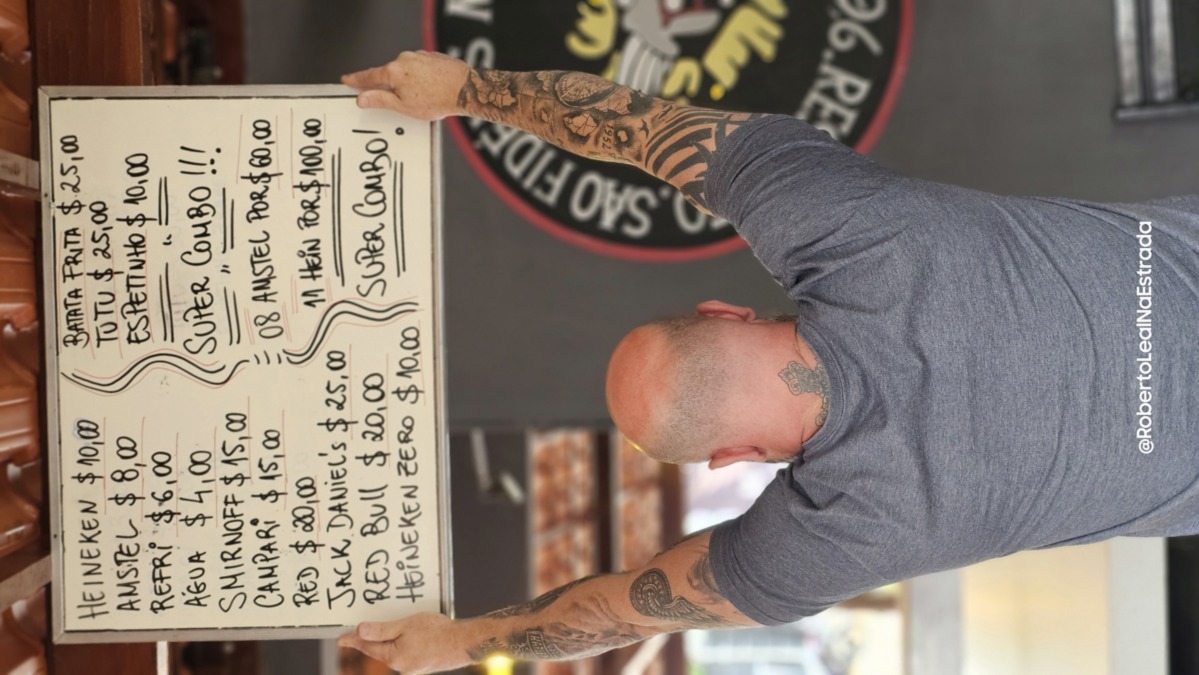 HEINEKEN $ 10,00
AMSTEL $ 8,00
REFRI $ 6,00
AGUA $ 4,00
SMIRNOFF $ 15,00
CAMPARI $ 15,00
RED $ 20,00
JACK DANIEL'S $ 25,00
RED BULL $ 20,00
HEINEKEN ZERO $ 10,00
BATATA FRITA $ 25,00
TUTU $ 25,00
ESPETINHO $ 10,00
SUPER COMBO !!!
08 AMSTEL POR $ 60,00
11 HEIN POR $ 100,00
SUPER COMBO!
SÃO FIDÉ
1952
@RobertoLealNaEstrada